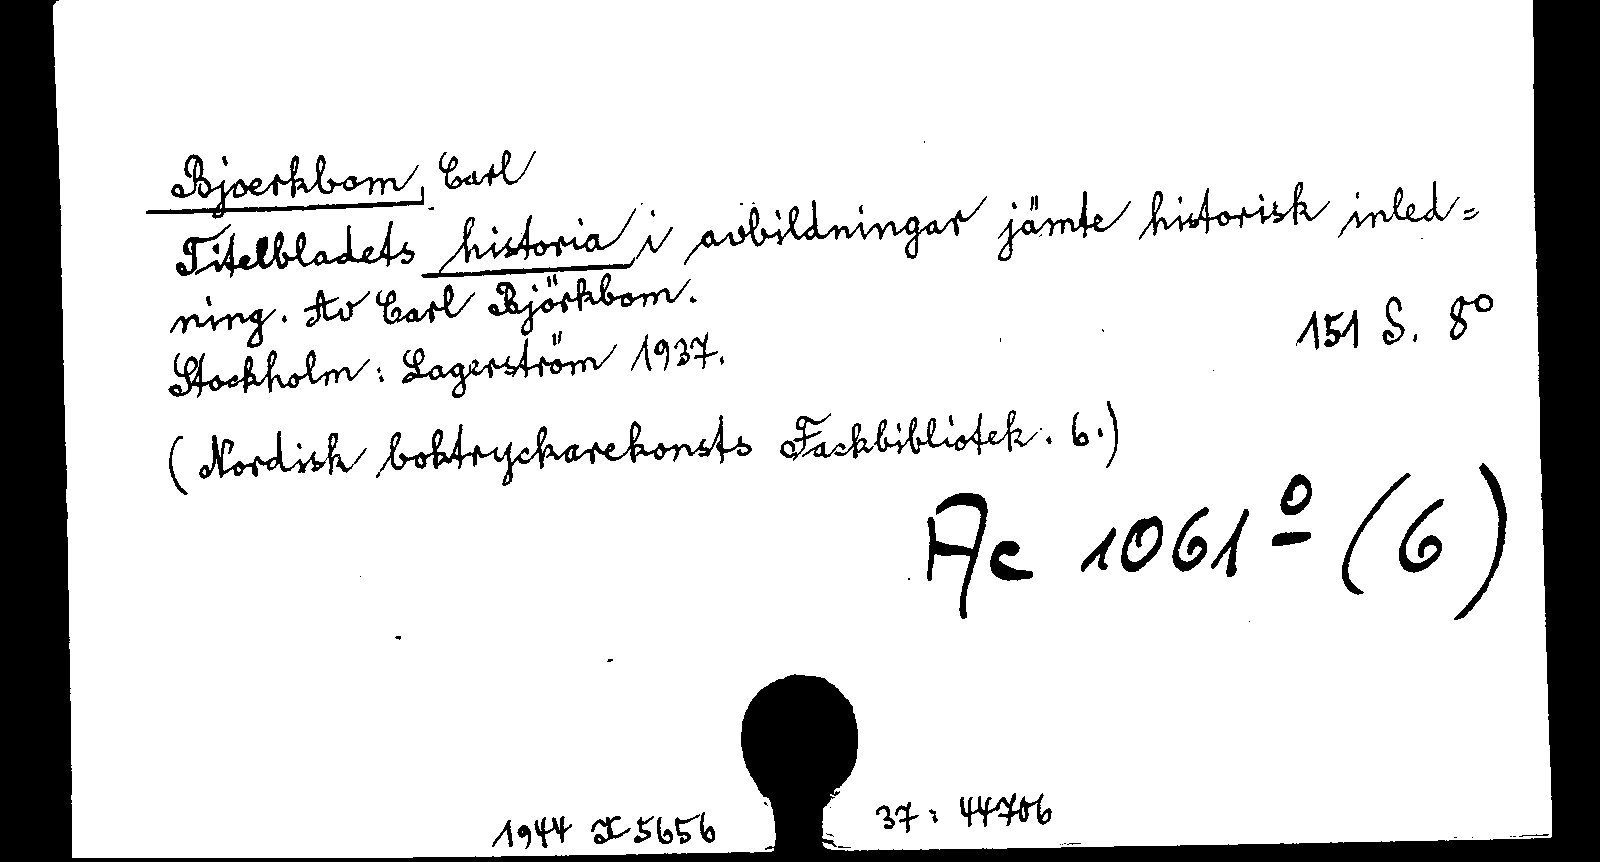 Bjoerkbom, Carl
Titelbladets historia i avbildningar jämte historisk inled=
ning. Av Carl Björkbom.
151 S. 8°
Stockholm: Lagerström 1937.
(Nordisk boktryckarekonsts Fackbibliotek. 6.)
Ac 1061º (6)
1944 X 5656
37: 44706